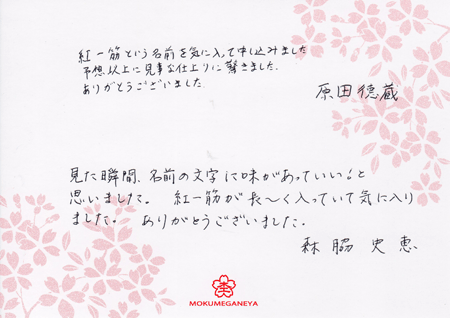 紅一筋という名前を気に入って申し込みました
予想以上に見事な仕上りに驚きました。
ありがとうございました。
原田徳蔵
見た瞬間、名前の文字に味があっていい!と
思いました。 紅一筋が長〜く入っていて気に入り
ました。 ありがとうございました。
森脇史恵
MOKUMEGANEYA